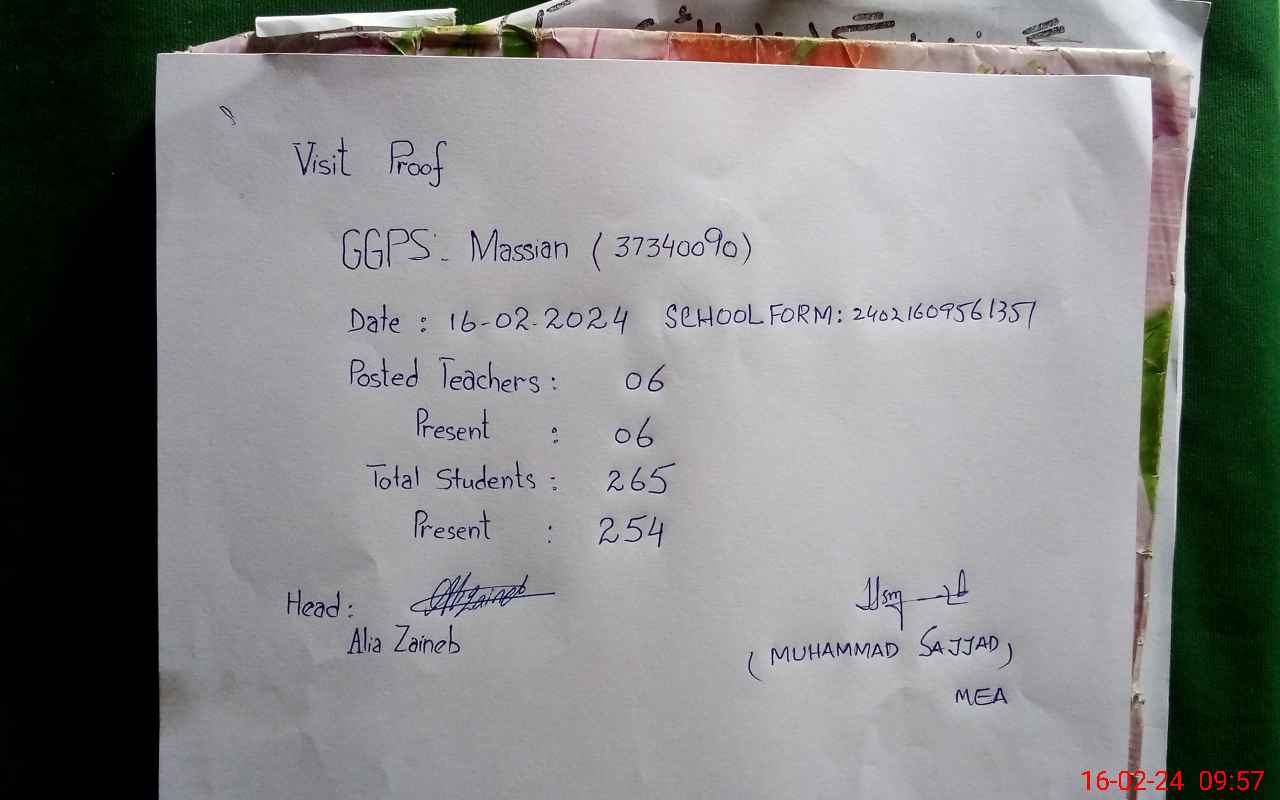 Visit Proof
GGPS: Massian (37340090)
Date : 16-02-2024 SCHOOL FORM: 24021609561351
Posted Teachers : 06
Present : 06
Total Students : 265
Present : 254
Head:
Alia Zaineb
(MUHAMMAD SAJJAD)
MEA
16-02-24 09:57